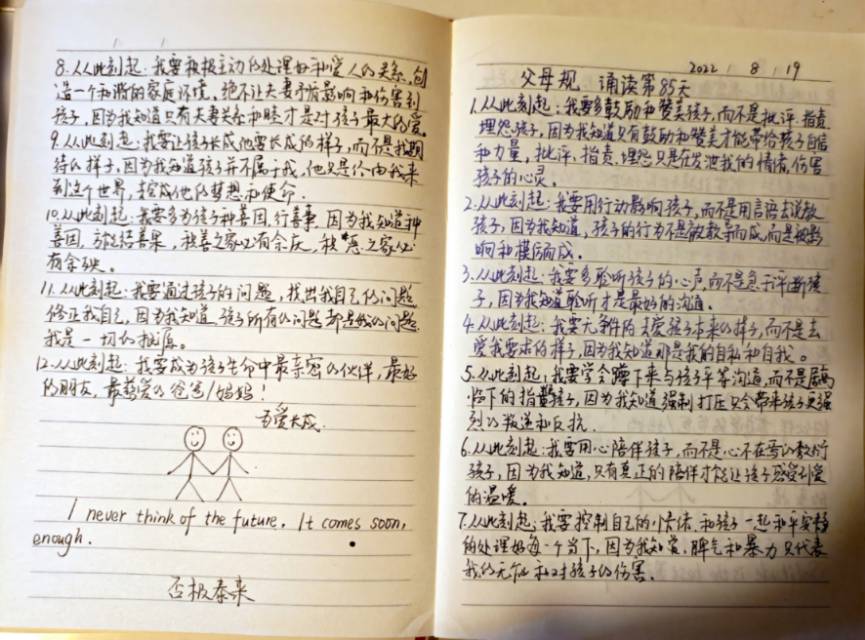 8.从此刻起:我要积极主动的处理好和爱人的关系,创
造一个和谐的家庭环境,绝不让夫妻矛盾影响和伤害到
孩子,因为我知道只有夫妻关系和睦才是对孩子最大的爱。
9.从此刻起:我要让孩子长成他要长成的样子,而不是我期
待的样子,因为我知道孩子并不属于我,他只是经由我来
到这个世界,去完成他的梦想和使命.
10.从此刻起:我要多为孩子种善因,行善事,因为我知道种
善因,方能结善果,积善之家必有余庆,积恶之家必
有余殃。
11.从此刻起:我要通过孩子的问题,找出我自己的问题
修正我自己,因为我知道,孩子所有的问题都是我的问题
我是一切的根源。
12.从此刻起:我要成为孩子生命中最亲密的伙伴,最好
的朋友,最慈爱的爸爸/妈妈!
吾爱大成.
I never think of the future. It comes soon,
enough.
否极泰来
2022 / 8 / 19
父母规 诵读第85天
1.从此刻起:我要多鼓励和赞美孩子,而不是批评、指责
埋怨孩子,因为我知道只有鼓励和赞美才能带给孩子自信
和力量,批评、指责、埋怨只是在发泄我的情绪,伤害
孩子的心灵。
2.从此刻起:我要用行动影响孩子,而不是用言语去说教
孩子,因为我知道,孩子的行为不是被教导而成,而是被影
响和模仿而成。
3.从此刻起:我要多聆听孩子的心声,而不是急于评断孩
子,因为我知道聆听才是最好的沟通。
4.从此刻起:我要无条件的去爱孩子本来的样子,而不是去
爱我要求的样子,因为我知道那是我的自私和自我。
5.从此刻起:我要学会蹲下来与孩子平等沟通,而不是居高
临下的指责孩子,因为我知道强制打压只会带来孩子更强
烈的叛逆和反抗.
6.从此刻起:我要用心陪伴孩子,而不是心不在焉的敷衍
孩子,因为我知道,只有真正的陪伴才能让孩子感受到爱
的温暖。
7.从此刻起:我要控制自己的小情绪,和孩子一起和平安静
的处理好每一个当下,因为我知道,脾气和暴力只代表
我的无能和对孩子的伤害.